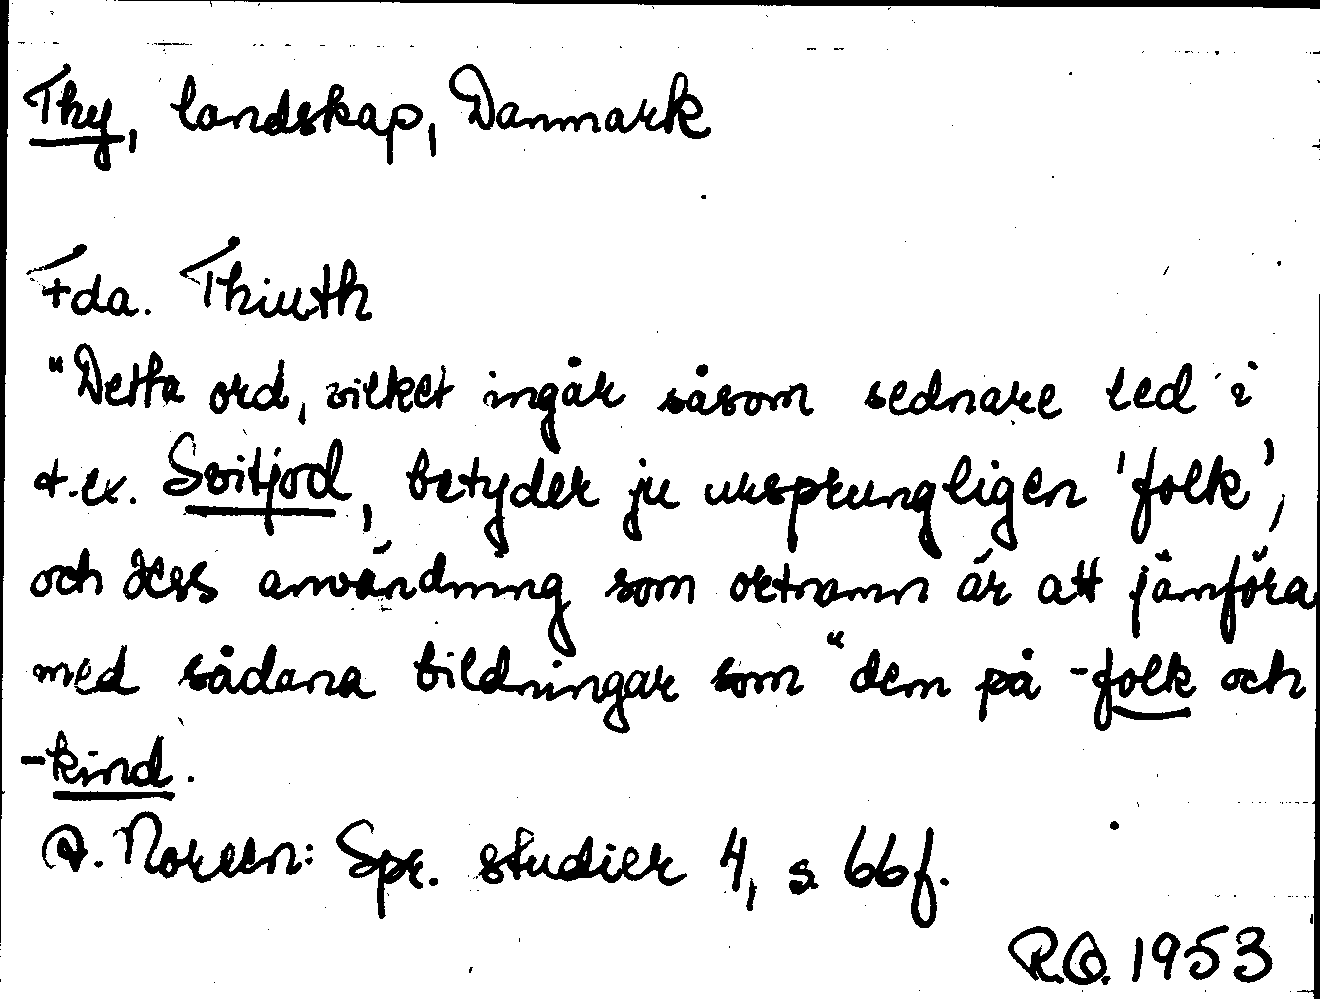 Thy, landskap, Danmark
Fda. Thiuth
"Detta ord, vilket ingår såsom sednare led i
t.ex. Svitjod, betyder ju ursprungligen 'folk',
och dess användning som ortnamn är att jämföra
med sådana bildningar som "dem på -folk och
-kind.
A. Noreen: Spr. studier 4, s 66f.
R.O. 1953